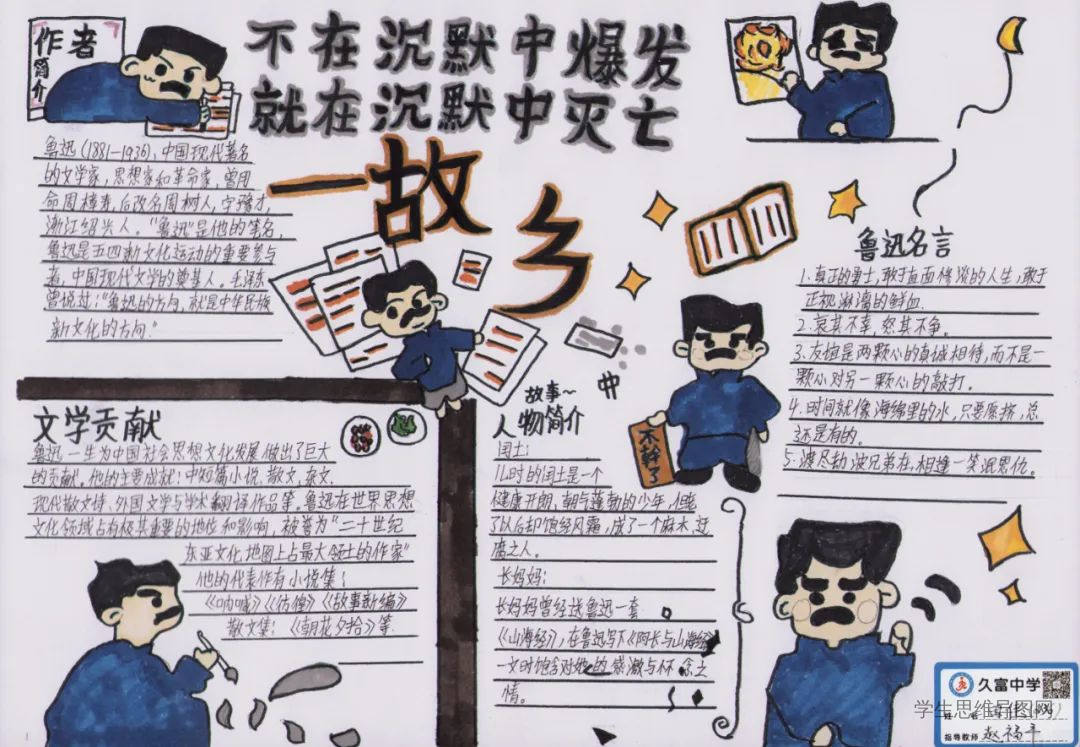 不在沉默中爆发
就在沉默中灭亡
一故乡
作者简介
鲁迅(1881—1936),中国现代著名
的文学家,思想家和革命家,曾用
命周樟寿,后改名周树人,字豫才,
浙江绍兴人。“鲁迅”是他的笔名,
鲁迅是五四新文化运动的重要参与
者,中国现代文学的奠基人。毛泽东
曾说过:“鲁迅的方向,就是中华民族
新文化的方向.”
文学贡献
鲁迅一生为中国社会思想文化发展做出了巨大
的贡献。他的主要成就:中短篇小说、散文、杂文、
现代散文诗、外国文学与学术翻译作品等。鲁迅在世界思想
文化领域占有极其重要的地位和影响,被誉为“二十世纪
东亚文化地图上占最大领土的作家”
他的代表作有小说集:
《呐喊》《彷徨》《故事新编》
散文集:《朝花夕拾》等.
故事~
人物简介
闰土:
儿时的闰土是一个
健康开朗,朝气蓬勃的少年,但
了以后却饱经风霜,成了一个麻木,迂
腐之人。
长妈妈:
长妈妈曾经送鲁迅一套
《山海经》,在鲁迅写下《阿长与山海经》
一文时饱含对她的感激与怀念之
情。
木幹了
鲁迅名言
1.真正的勇士,敢于直面惨淡的人生,敢于
正视淋漓的鲜血.
2.哀其不幸,怒其不争。
3.友谊是两颗心的真诚相待,而不是一
颗心对另一颗心的敲打。
4.时间就像海绵里的水,只要愿挤,总
还是有的。
5.渡尽劫波兄弟在,相逢一笑泯恩仇。
久富中学
学生思维导图网
姓名
指导教师 赵福平